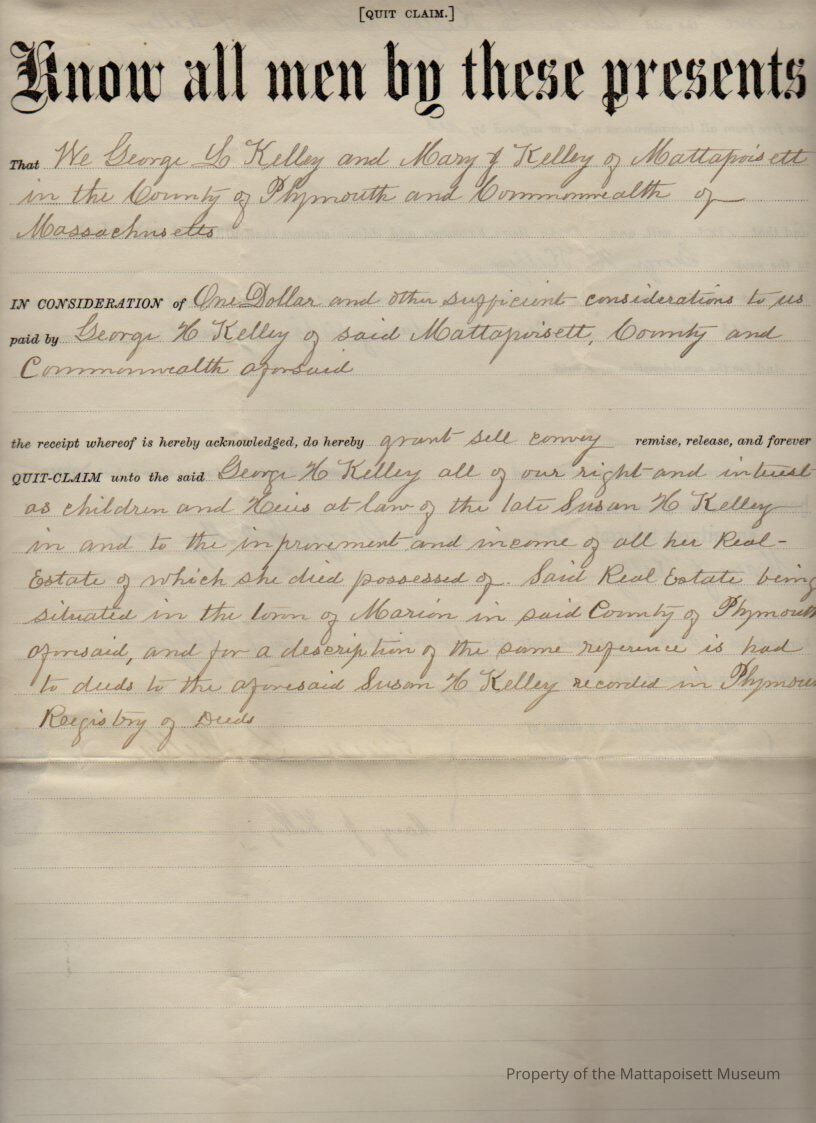 [QUIT CLAIM.]
Know all men by these presents
That We George L Kelley and Mary J Kelley of Mattapoisett
in the County of Plymouth and Commonwealth of
Massachusetts
IN CONSIDERATION of One Dollar and other sufficient considerations to us
paid by George H Kelley of said Mattapoisett, County and
Commonwealth aforsaid
the receipt whereof is hereby acknowledged, do hereby grant sell convey remise, release, and forever
QUIT-CLAIM unto the said George H Kelley all of our right and interest
as children and Heirs at law of the late Susan H Kelley
in and to the improvement and income of all her Real-
Estate of which she died possessed of. Said Real Estate being
situated in the town of Marion in said County of Plymouth
aforesaid, and for a description of the same reference is had
to deeds to the aforesaid Susan H Kelley recorded in Plymou
Registry of Deeds
Property of the Mattapoisett Museum